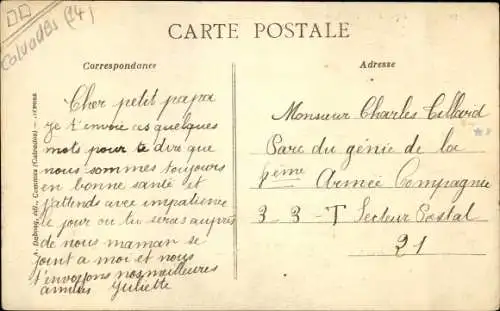 Calvados (14)
CARTE POSTALE
Correspondance
Cher petit papa
je t'envoie ces quelques
mots pour te dire que
nous sommes toujours
en bonne santé et
j'attends avec impatience
le jour ou tu seras auprès
de nous maman se
joint a moi et nous
t'envoyons nos meilleures
amitiés Juliette
Adresse
Monsieur Charles
Parc du génie de la
Armée Compagnie
3 - 3 - T Secteur Postal
21